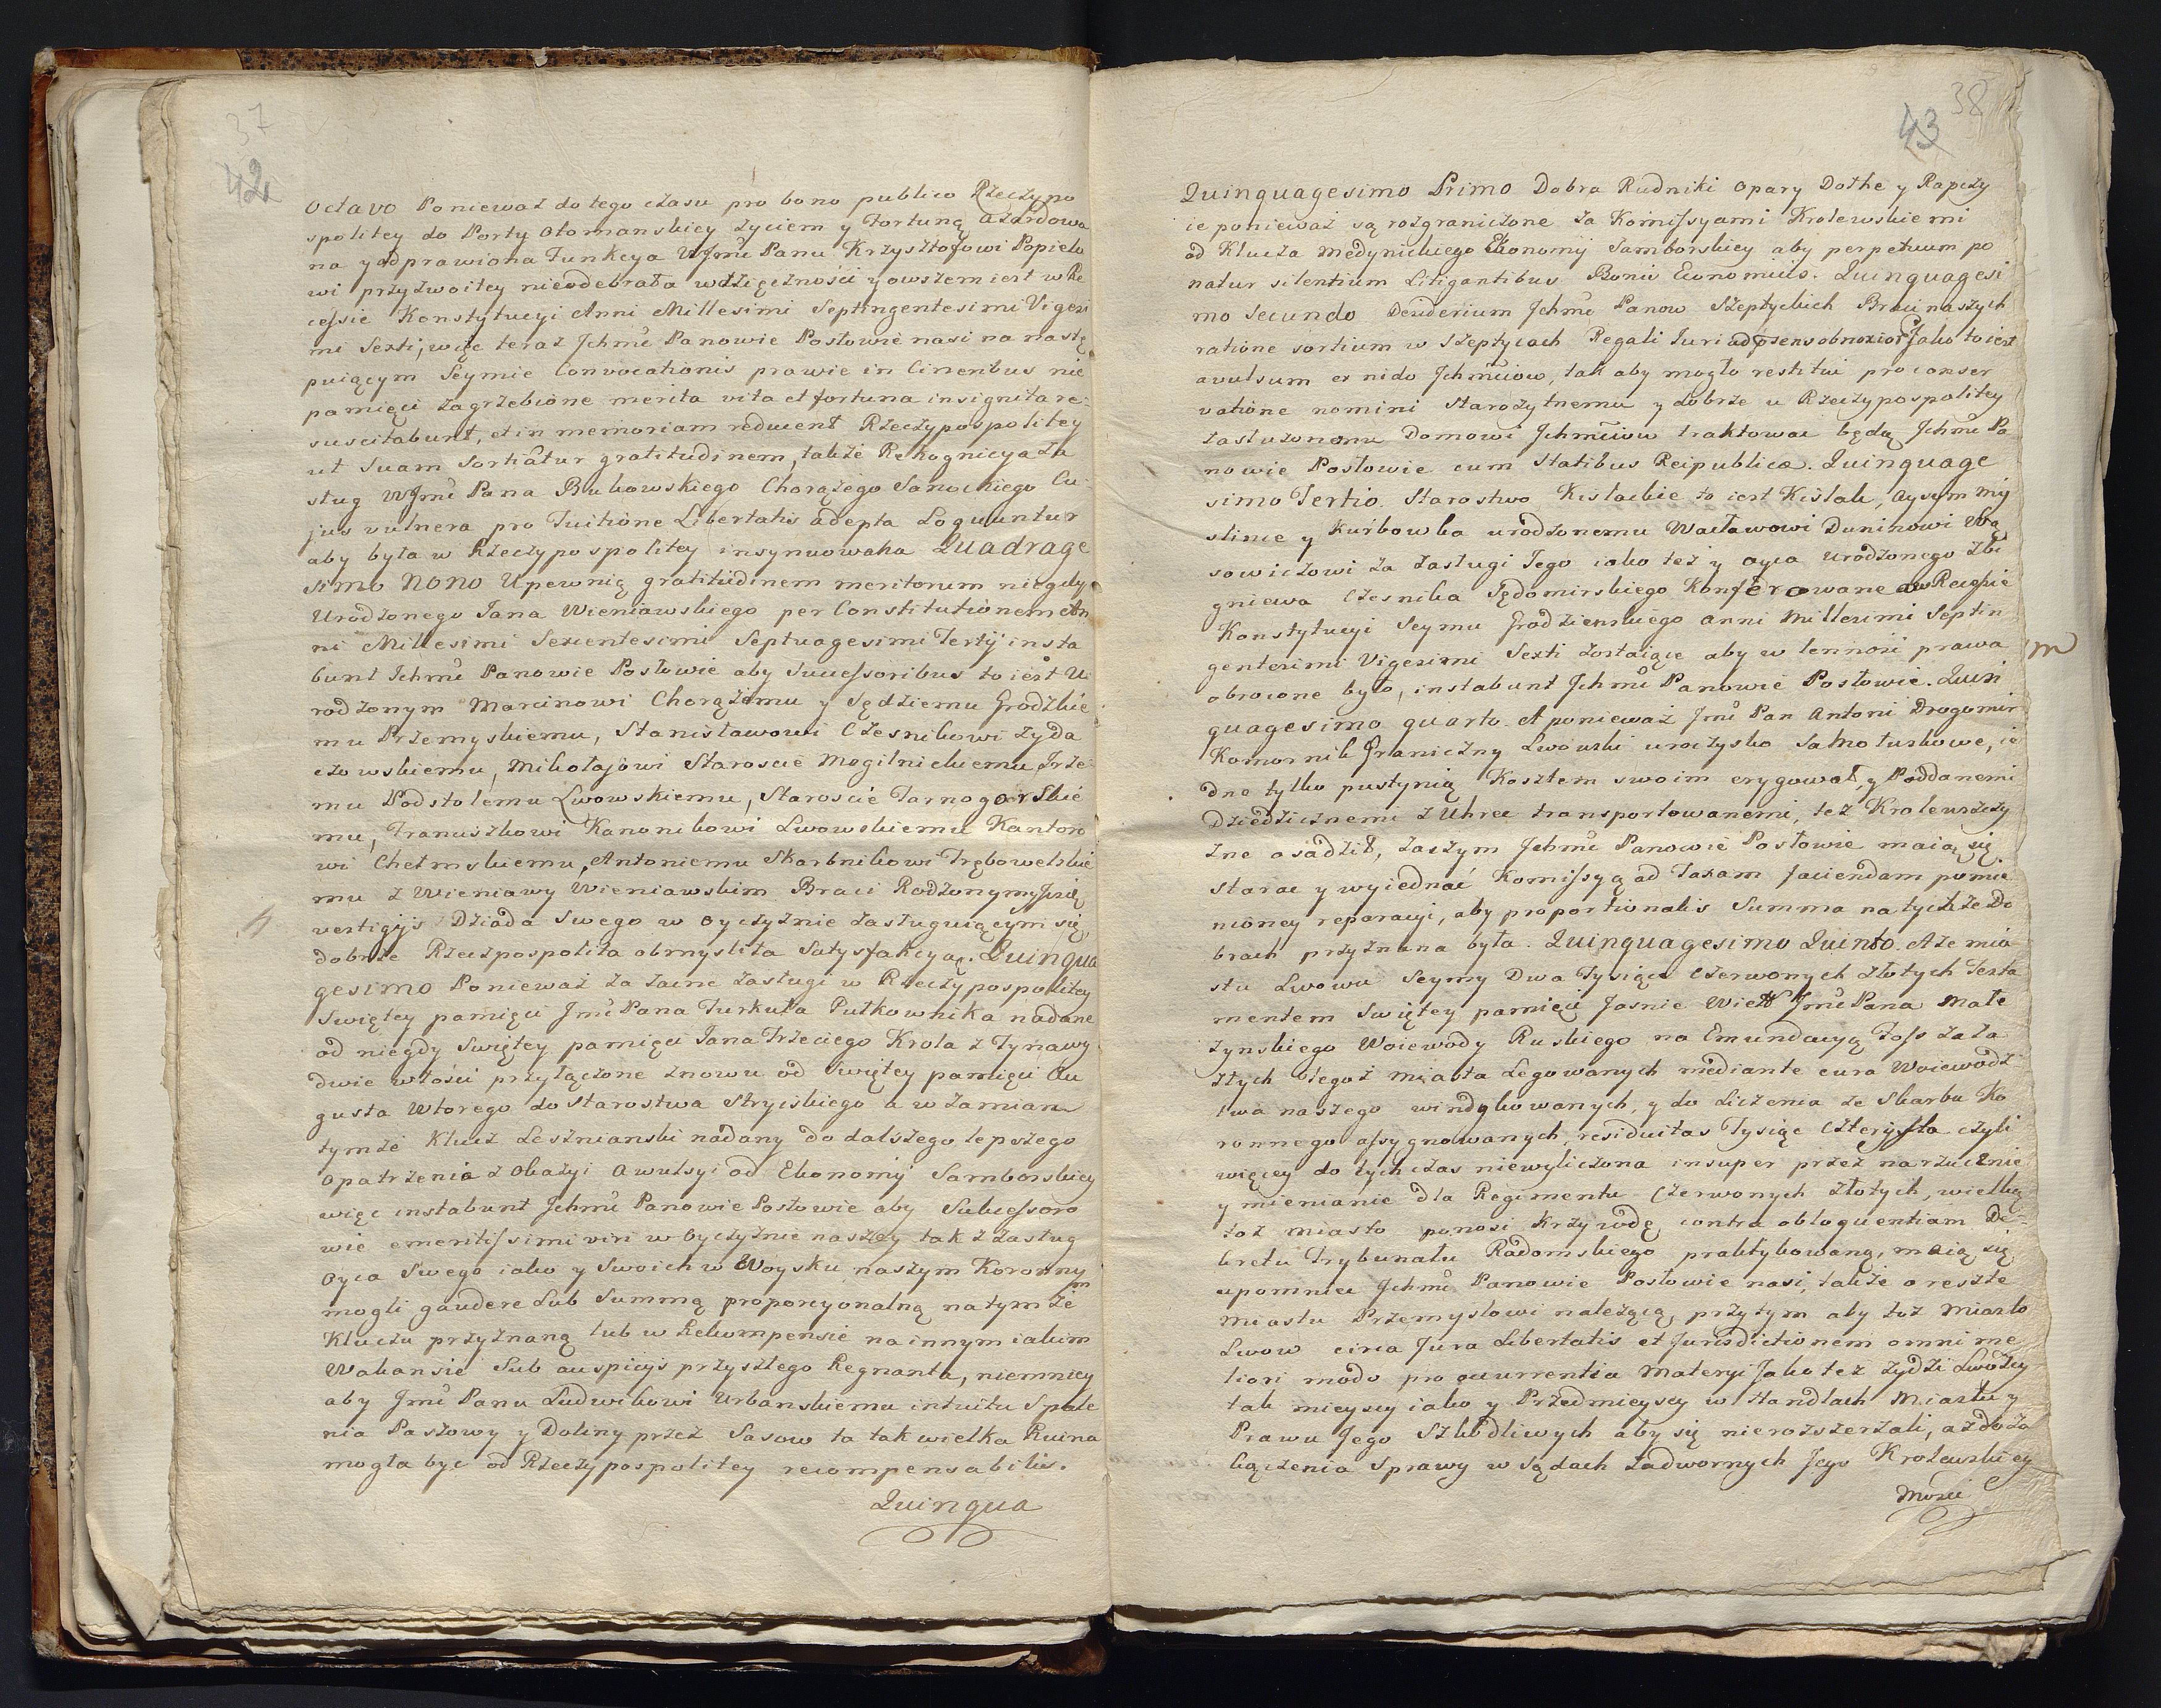 37
42
Octavo Ponieważ do tego czasu pro bono publico Rzeczypo
spolitey do Porty Otomanskiey życiem y Fortuną azardowa
na y odprawiona Funkcya WJmci Panu Krzysztofowi Popielo
wi przyzwoitey nieodebrała wdzięczności y owszem iest w Re
cessie Konstytucyi Anni Millesimi Septingentesimi Vigesi
mi Sexti, więc teraz Jchmć Panowie Posłowie nasi na nastę
puiącym Seymie Convocationis prawie in Cineribus nie
pamięci zagrzebione merita vita et fortuna insignita re-
suscitabunt, et in memoriam reducent Rzeczypospolitey
ut Suam Sortiatur gratitudinem, także Rekognicya Za
sług WJmć Pana Bukowskiego Chorążego Sanockiego Cu
jus vulnera pro Tuitione Libertatis adepta Loquuntur
aby była w Rzeczypospolitey insynuowana Quadrage
simo Nono Upewnią gratitudinem meritorum niegdy
Urodzonego Jana Wieniawskiego per Constitutionem An
ni Millesimi Sexcentesimi Septuagesimi Tertij insta
bunt Jchmć Panowie Posłowie aby Successoribus to iest U
rodzonym Marcinowi Chorążemu y Sędziemu Grodzkie
mu Przemyskiemu, Stanisławowi Czesnikowi Zyda
czowskiemu, Mikołajowi Staroscie Mogilnickiemu Jrze
mu Podstolemu Lwowskiemu, Staroscie Tarnogorskie
mu, Franuszkowi Kanonikowi Lwowskiemu Kantoro
wi Chełmskiemu, Antoniemu Skarbnikowi Trębowelskie
mu z Wieniawy Wieniawskim Braci Rodzonym
vestigijs Dziada Swego w Oyczyznie zasługuiącym się,
dobrze Rzeczpospolita obmyslita Satysfakcyą. Quinqua
gesimo Ponieważ za zacne zasługi w Rzeczypospolitey
Swiętey pamięci Jmć Pana Turkuła Pułkownika nadane
od niegdy Swiętey pamięci Jana Trzeciego Krola z Tynawy
dwie włości przyłączone znowu od Swiętey pamięci Au
gusta Wtorego do Starostwa Stryiskiego a w zamian
tymże Klucz Leznianski nadany do dalszego lepszego
opatrzenia z Okazyi Awulsyi od Ekonomij Samborskiey
więc instabunt Jchmć Panowie Posłowie aby Sukcessoro
wie emeritissimi viri w Oyczyznie naszey tak z zasług
Oyca Swego iako y Swoich w Woysku naszym Koronny
m
mogli gaudere Sub Summą proporcyonalną na tymże
Kluczu przyznaną lub w Rekompensie na innym iakim
Wakansie Sub auspicijs przyszłego Regnanta, niemniey
aby Jmć Panu Ludwikowi Urbanskiemu intuitu Spale
nia Pasłowy y Doliny przez Sasow ta tak wielka Ruina
mogła byc od Rzeczypospolitey recompensabilis.
Quinqua
38
43
Quinquagesimo Primo Dobra Rudniki Opary Dołhe y Rapczy
ce ponieważ są rozgraniczone za Komissyami Krolewskiemi
od Klucza Medynickiego Ekonomij Samborskiey aby perpetuum po
natur silentium Litigantibus Bonis Economicis. Quinquagesi
mo Secundo Desiderium Jchmć Panow Szeptyckich Braci naszych
ratione sortium w Szeptycach Regali Juri ad prsens obnoxior Jako to iest
avulsum ex nido Jchmciow, tak aby mogło restitui pro conser
vatione nomini Starożytnemu y dobrze u Rzeczypospolitey
zasłużonemu Domowi Jchmciow traktowac będą Jchmć Pa
nowie Posłowie cum Statibus Reipublicæ. Quinquage
simo Tertio. Starostwo Kisłackie to iest Kisłak, Aysym my
slince y Kurbowka urodzonemu Wacławowi Duninowi Wą
sowiczowi za zasługi Jego iako też y oyca urodzonego Zbi
gniewa Czesnika Sędomirskiego Konferowane a w Recessie
Konstytucyi Seymu Grodzienskiego Anni Millesimi Septin
gentesimi Vigesimi Sexti zostaiące aby w lenność prawa
m
obrocone było, instabunt Jchmć Panowie Posłowie. Quin
quagesimo quarto. A ponieważ Jmć Pan Antoni Drogomir
Komornik Graniczny Lwowski uroczysko Salnoturkowe, ie
dne tylko pustynią Kosztem swoim erygował, y Poddanemi
Dziedzicznemi z Uhrec transportowanemi, też Krolewszczy
zne osadził, zaczym Jchmć Panowie Posłowie maią się
starac y wyiednać Komissyą ad Taxam faciendam pomie
nioney reparacyi, aby proportionalis Summa na tychże Do
brach przyznana była. Quinquagesimo Quinto. A że mia
stu Lwowu Seymy Dwa Tysiące Czerwonych Złotych Testa
mentem Swiętey pamięci Jasnie Wielk Jmć Pana Mate
zynskiego Woiewody Ruskiego na Emundacyą Foss zała
złych tegoż miasta Legowanych mediante cura Woiewodz
twa naszego windykowanych, y do Liczenia ze Skarbu Ko
ronnego assygnowanych, residuitas Tysiąc Czterysta czyli
więcey do tychczas niewyliczona insuper przez narzucenie
y mienianie dla Regimentu Czerwonych Złotych, wielką
toż miasto ponosi Krzywdę contra obloquentiam De-
kretu Trybunału Radomskiego praktykowaną, maią się
upomniec Jchmć Panowie Posłowie nasi, także o reszte
Miastu Przemyslowi należącą, przytym aby toż Miasto
Lwow circa Jura Libertatis et Jurisdictionem omni me
liori modo pro occurrentia Materyi Jako też Zydzi Lwowscy
tak mieyscy iako y Przedmieyscy w Handlach Miastu y
Prawu Jego Szkodliwych aby się nierozszerzali, aż do za
kączenia Sprawy w Sądach Zadwornych Jego Krolewskiey
Mosci